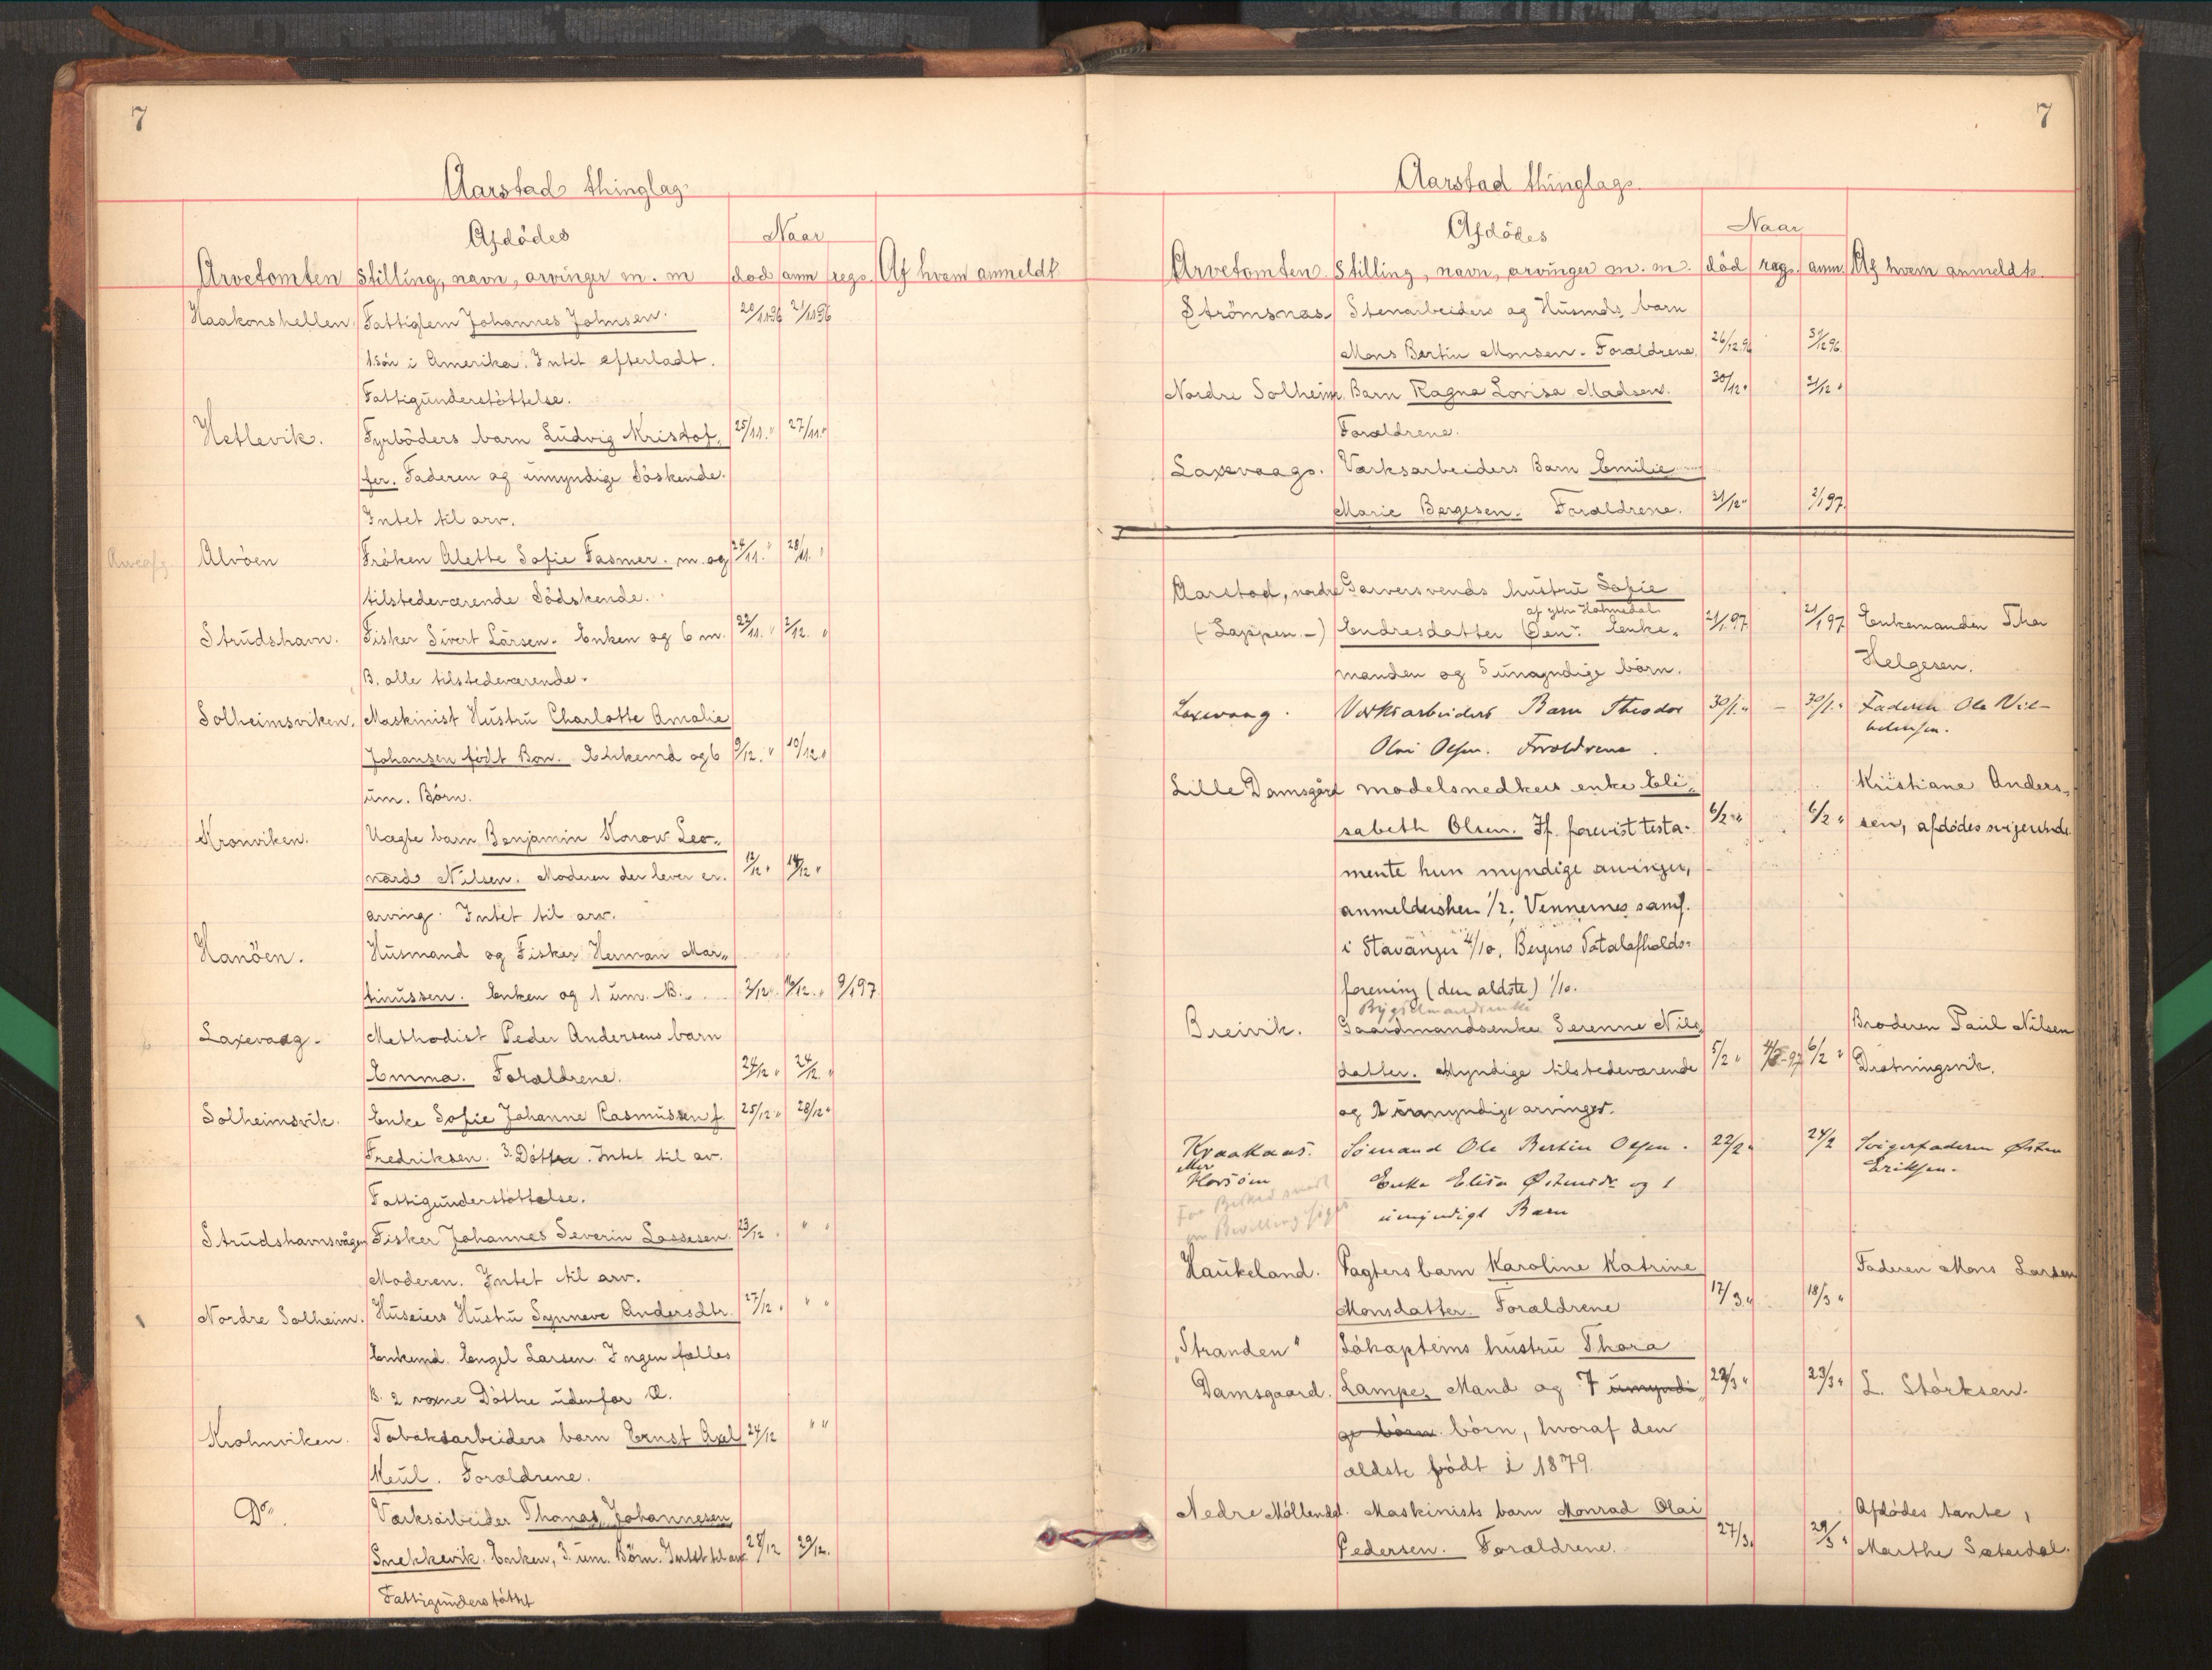 7
Aarstad thinglag
Afdödes
Naar
Arvetomten Stilling, navn, arvinger m. m död anm regs. Af hvem anmeldt
Haakonshellen. Fattiglem Johannes Johnsen. 20/11.96 21/11.96
1 sön i Amerika. Intet efterladt.
Fattigunderstöttelse.
Hetlevik. Fyrböders barn Ludvig Kristof- 25/11. " 27/11. "
fer. Faderen og umyndige Söskende.
Intet til arv.
Alvöen Fröken Alette Sofie Fasmer. m. og 24/11. " 28/11. "
tilstedeværende Södskende.
Strudshavn. Fisker Sivert Larsen. Enken og 6 m. 22/11. " 2/12. "
B. alle tilstedeværende.
Solheimsviken. Maskinist Hustru Charlotte Amalie
Johansen födt Bon. Enkemd og 6 9/12. " 10/12. "
um. Börn.
Kronviken. Uægte barn Benjamin Konow Leo-
nard Nilsen. Moderen der lever er. 12/12 " 14/12 "
arving. Intet til arv.
Hanöen. Husmand og Fisker Herman Mar-
tinussen. Enken og 1 um. B. 3/12 " 16/12. " 9/1 97
Laxevaag. Methodist Peder Andersens barn
Emma. Forældrene. 24/12 " 24/12. "
Solheimsvik. Enke Sofie Johanne Rasmussen f. 25/12 " 28/12 "
Fredriksen. 3 Döttre. Intet til arv.
Fattigunderstöttelse.
Strudshavnsvågen Fisker Johannes Severin Lassesen. 23/12 " " "
Moderen. Intet til arv.
Nordre Solheim. Huseiers Hustru Synneve Andersdtr. 27/12 " " "
Enkemd. Engel Larsen. Ingen fælles
B. 2 voxne Döttre udenfor Æ.
Krohnviken. Tobaksarbeiders barn Ernst Axel 24/12 " "
Keul. Forældrene.
Do. Værksarbeider Thomas Johannesen
Snekkevik. Enken, 3 um. Börn. Intet til arv 28/12 29/12.
Fattigunderstöttet
7
Aarstad thinglag.
Afdödes
Naar
Arvetomten. Stilling, navn, arvinger m. m. död regs. anm. Af hvem anmeldt.
Strömsnæs. Stenarbeiders og Husmds barn
Mons Bertin Monsen. Forældrene. 26/12.96 31/12 96.
Nordre Solheim. Barn Ragna Lovisa Madsen. 30/12 " 31/12 "
Forældrene.
Laxevaag. Værksarbeiders Barn Emilie
Marie Børgesen. Forældrene. 31/12 " 2/1 97.
Aarstad, nordre Garversvends hustru Sofie
af ytre Holmedal
(- Lappen. -) Endresdatter Öen. Enke- 21/1.97. 21/1 97. Enkemanden Thor
manden og 5 umyndige börn. Helgesen.
Laxevaag. Verksarbeiders Barn Theodor 30/1. " - 30/1. " Faderen Ole Vil-
Olai Olsen. Forældrene. helmsen.
Lille Damsgård modelsnedkers enke Eli- Kristiane Anders-
sabeth Olsen. If. forevist testa- 6/2 " 6/2 " sen, afdödes svigerinde
mente hun myndige arvinger,
anmeldersken 1/2. Vennernes samf.
i Stavanger 4/10. Bergens Totalafholds-
forening (den ældste) 1/10.
Bygselmandsenke
Breivik. Gaardmandsenke Serenne Nils- Broderen Paul Nilsen
datter. Myndige tilstedeværende 5/2 " 6/2 " Drotningsvik.
og 2 umyndige arvinger.
Kraakaas. Sömand Ole Bertin Olsen. 22/2 " 24/2 Svigerfaderen Østen
eller
Enke Elisa Østensdr og 1 Eriksen.
umyndigt Barn
Haukeland. Pagters barn Karoline Katrine Faderen Mons Larsen
Monsdatter. Forældrene 17/3 " 18/3 "
"Stranden" Sökapteins hustru Thora
Damsgaard. Lampe. Mand og 7 umyndi- 22/3 " 23/3 " L. Störksen.
ge börn börn, hvoraf den
ældste födt i 1879.
Nedre Möllendal. Maskinists barn Monrad Olai Afdödes tante,
Pedersen. Forældrene. 27/3 " 29/3 " Marthe Sæterdal.